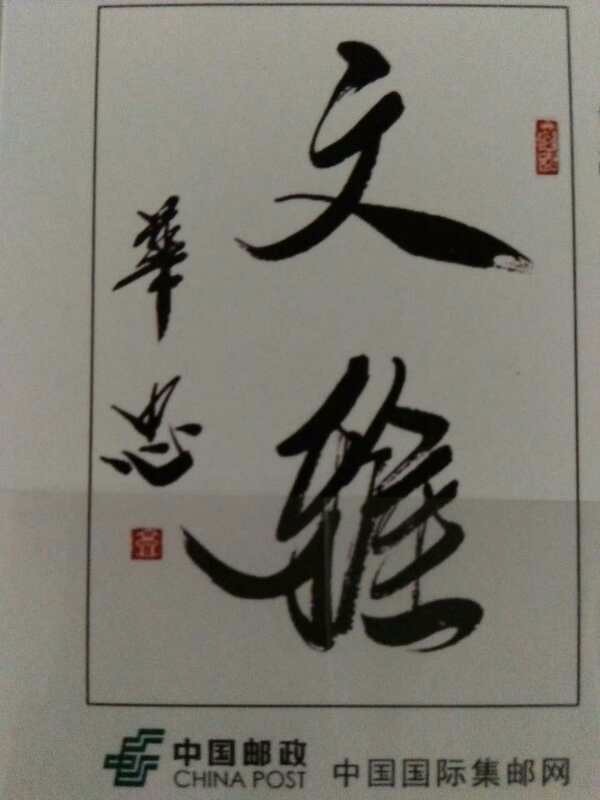 文雅
華忠
中国邮政
CHINA POST
中国国际集邮网